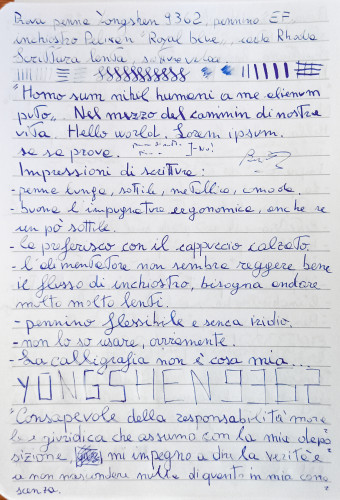 Prova penna Yongshen 9362, pennino EF
inchiostro Pelikan "Royal blue", carta Rhodia
Scrittura lenta, scrittura veloce.
"Homo sum nihil humani a me alienum
puto". Nel mezzo del cammin di nostra
vita. Hello world. Lorem ipsum.
sa sa prova.
Impressioni di scrittura:
- penna lunga, sottile, metallica, comoda.
- buona l'impugnatura ergonomica, anche se
un pò sottile.
- la preferisco con il cappuccio calzato.
- l'alimentatore non sembra reggere bene
il flusso di inchiostro, bisogna andare
molto molto lenti.
- pennino flessibile e senza iridio.
- non lo so usare, ovviamente.
- La calligrafia non è cosa mia...
YONGSHEN 9362
"Consapevole della responsabilità mora
le e giuridica che assumo con la mia depo
sizione, mi impegno a dire la verità e
a non nascondere nulla di quanto in mia cono
scenza."